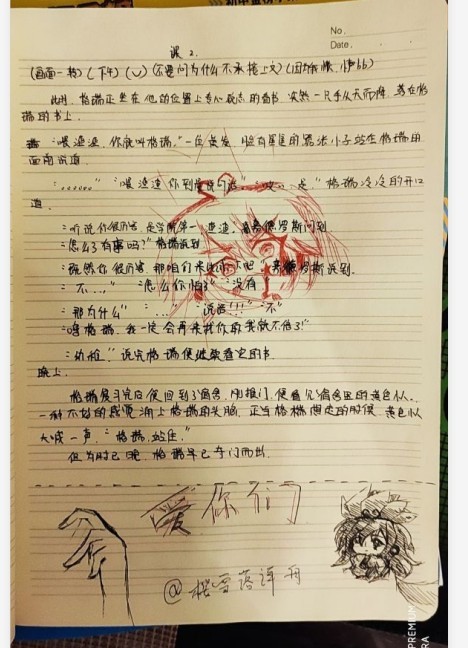 No.
Date.
课 2.
(画面一转)(下午)(∪)(不要问为什么不承接上文)(因为懒,懒bb)
此时,格瑞正坐在他的位置上专心致志的看书,突然一只手从天而降,落在格
瑞的书上.
"喂渣渣,你就叫格瑞."一位黄发,脸有星星的嚣张小子站在格瑞的
面前说道.
"......" "喂渣渣你到底 " "哎,是."格瑞冷冷的开口
道.
"听说你很厉害,是学院第一,渣渣."嘉德罗斯问到
"怎么了有事吗?"格瑞说到
"既然你很厉害,那咱们来 "嘉德罗斯说到.
"不..," "怎么你怕了" "没有"
"那为什么" "...." "说话!!!" "不"
"嘁格瑞,我一定会再来找你 我就不信了!"
"幼稚."说完格瑞便继续看它的书.
晚上.
格瑞复习完后便回到了宿舍,刚推门,便看见宿舍里的黄色小人.
一种不好的感觉涌上格瑞的头脑,正当格瑞想走的时候,黄色小人
大喊一声."格瑞,站住."
但为时已晚,格瑞早已夺门而出.
爱你们
@ 雪落
PREMIUM